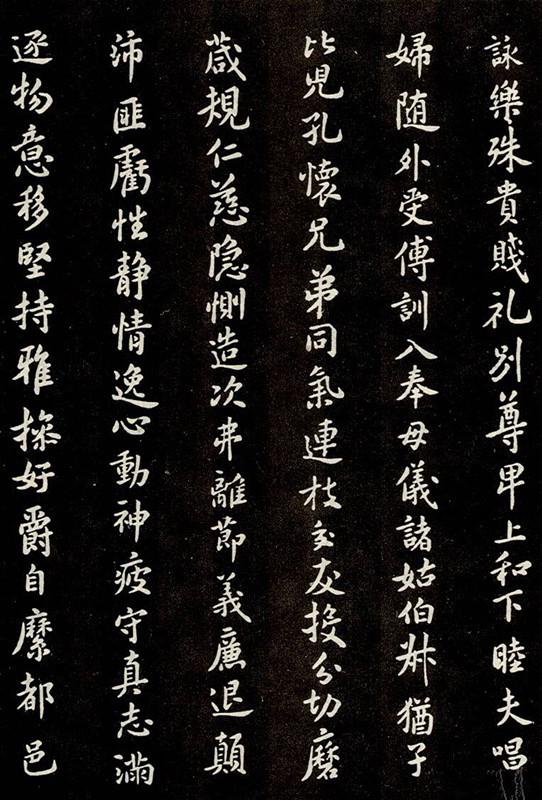 詠樂殊貴賤礼別尊卑上和下睦夫唱
婦随外受傅訓入奉母儀諸姑伯叔猶子
比兒孔懷兄弟同氣連枝交友投分切磨
葴規仁慈隐惻造次弗離節義廉退顛
沛匪虧性静情逸心動神疲守真志滿
逐物意移堅持雅操好爵自縻都邑